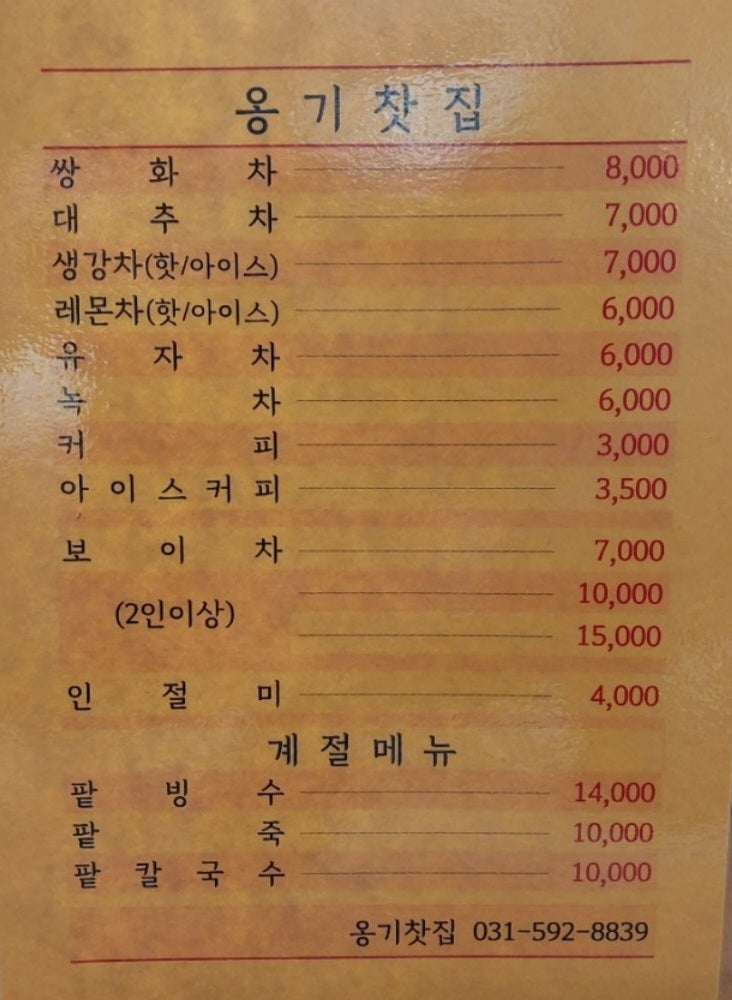 옹기찻집
쌍화차 8,000
대추차 7,000
생강차(핫/아이스) 7,000
레몬차(핫/아이스) 6,000
유자차 6,000
녹차 6,000
커피 3,000
아이스커피 3,500
보이차 7,000
(2인이상) 10,000
15,000
인절미 4,000
계절메뉴
팥빙수 14,000
팥죽 10,000
팥칼국수 10,000
옹기찻집 031-592-8839